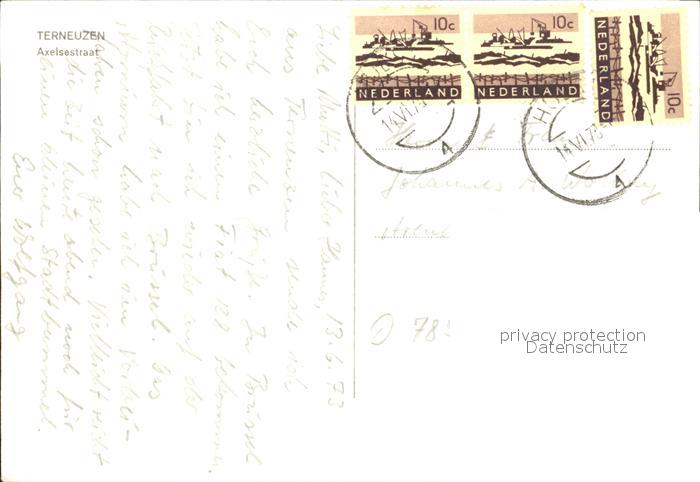 TERNEUZEN
Axelsestraat
Liebe Mutti, lieber Hannes, 13.6.73
aus Terneuzen sende ich
Euch herzliche Grüße. In Brüssel
habe ich einen Fiat 128 bekommen,
jetzt bin ich wieder auf der
nach Brüssel. Das
habe ich im Vorbei-
schon gesehen. Vielleicht reicht
die Zeit heute abend noch für
einen kleinen Stadtbummel.
Euer Wolfgang
10c
NEDERLAND
10c
NEDERLAND
10c
NEDERLAND
14.VI.73
4
14.VI.73
4
Johannes
78
privacy protection
Datenschutz